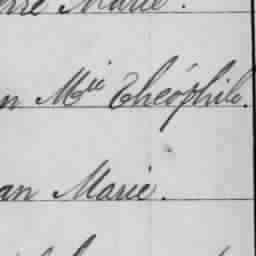 rre Marie.
n Mie Théophile.
an Marie.